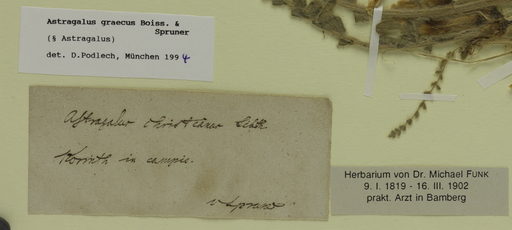 Astragalus graecus Boiss. &
Spruner
(§ Astragalus)
det. D.Podlech, München 1994
Astragalus christianus Sibth.
Korinth in campis.
v Spruner
Herbarium von Dr. Michael FUNK
9. I. 1819 - 16. III. 1902
prakt. Arzt in Bamberg